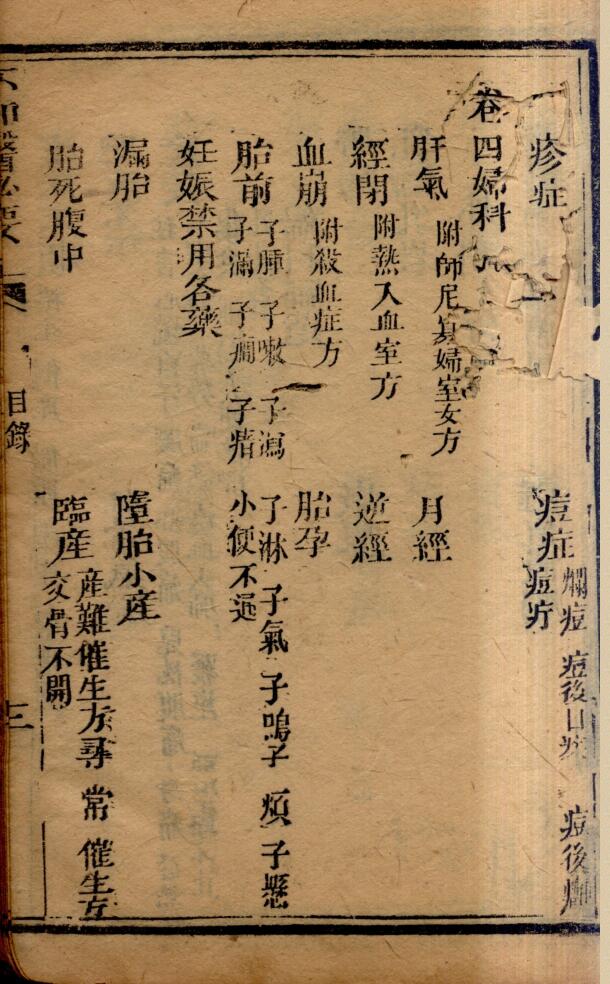 疹症 痘症 爛痘 痘後口 痘後
痘疔
卷四婦科
肝氣 附師尼寡婦室女方 月經
經閉 附熱入血室方 逆經
血崩 附殺血症方 胎孕
胎前 子腫 子嗽 子瀉 子淋 子氣 子鳴 子煩 子懸
子滿 子癇 子瘖 小便不通
妊娠禁用各藥
漏胎 墮胎小產
胎死腹中 臨産 産難催生方 尋常催生方
交骨不開
目錄
三